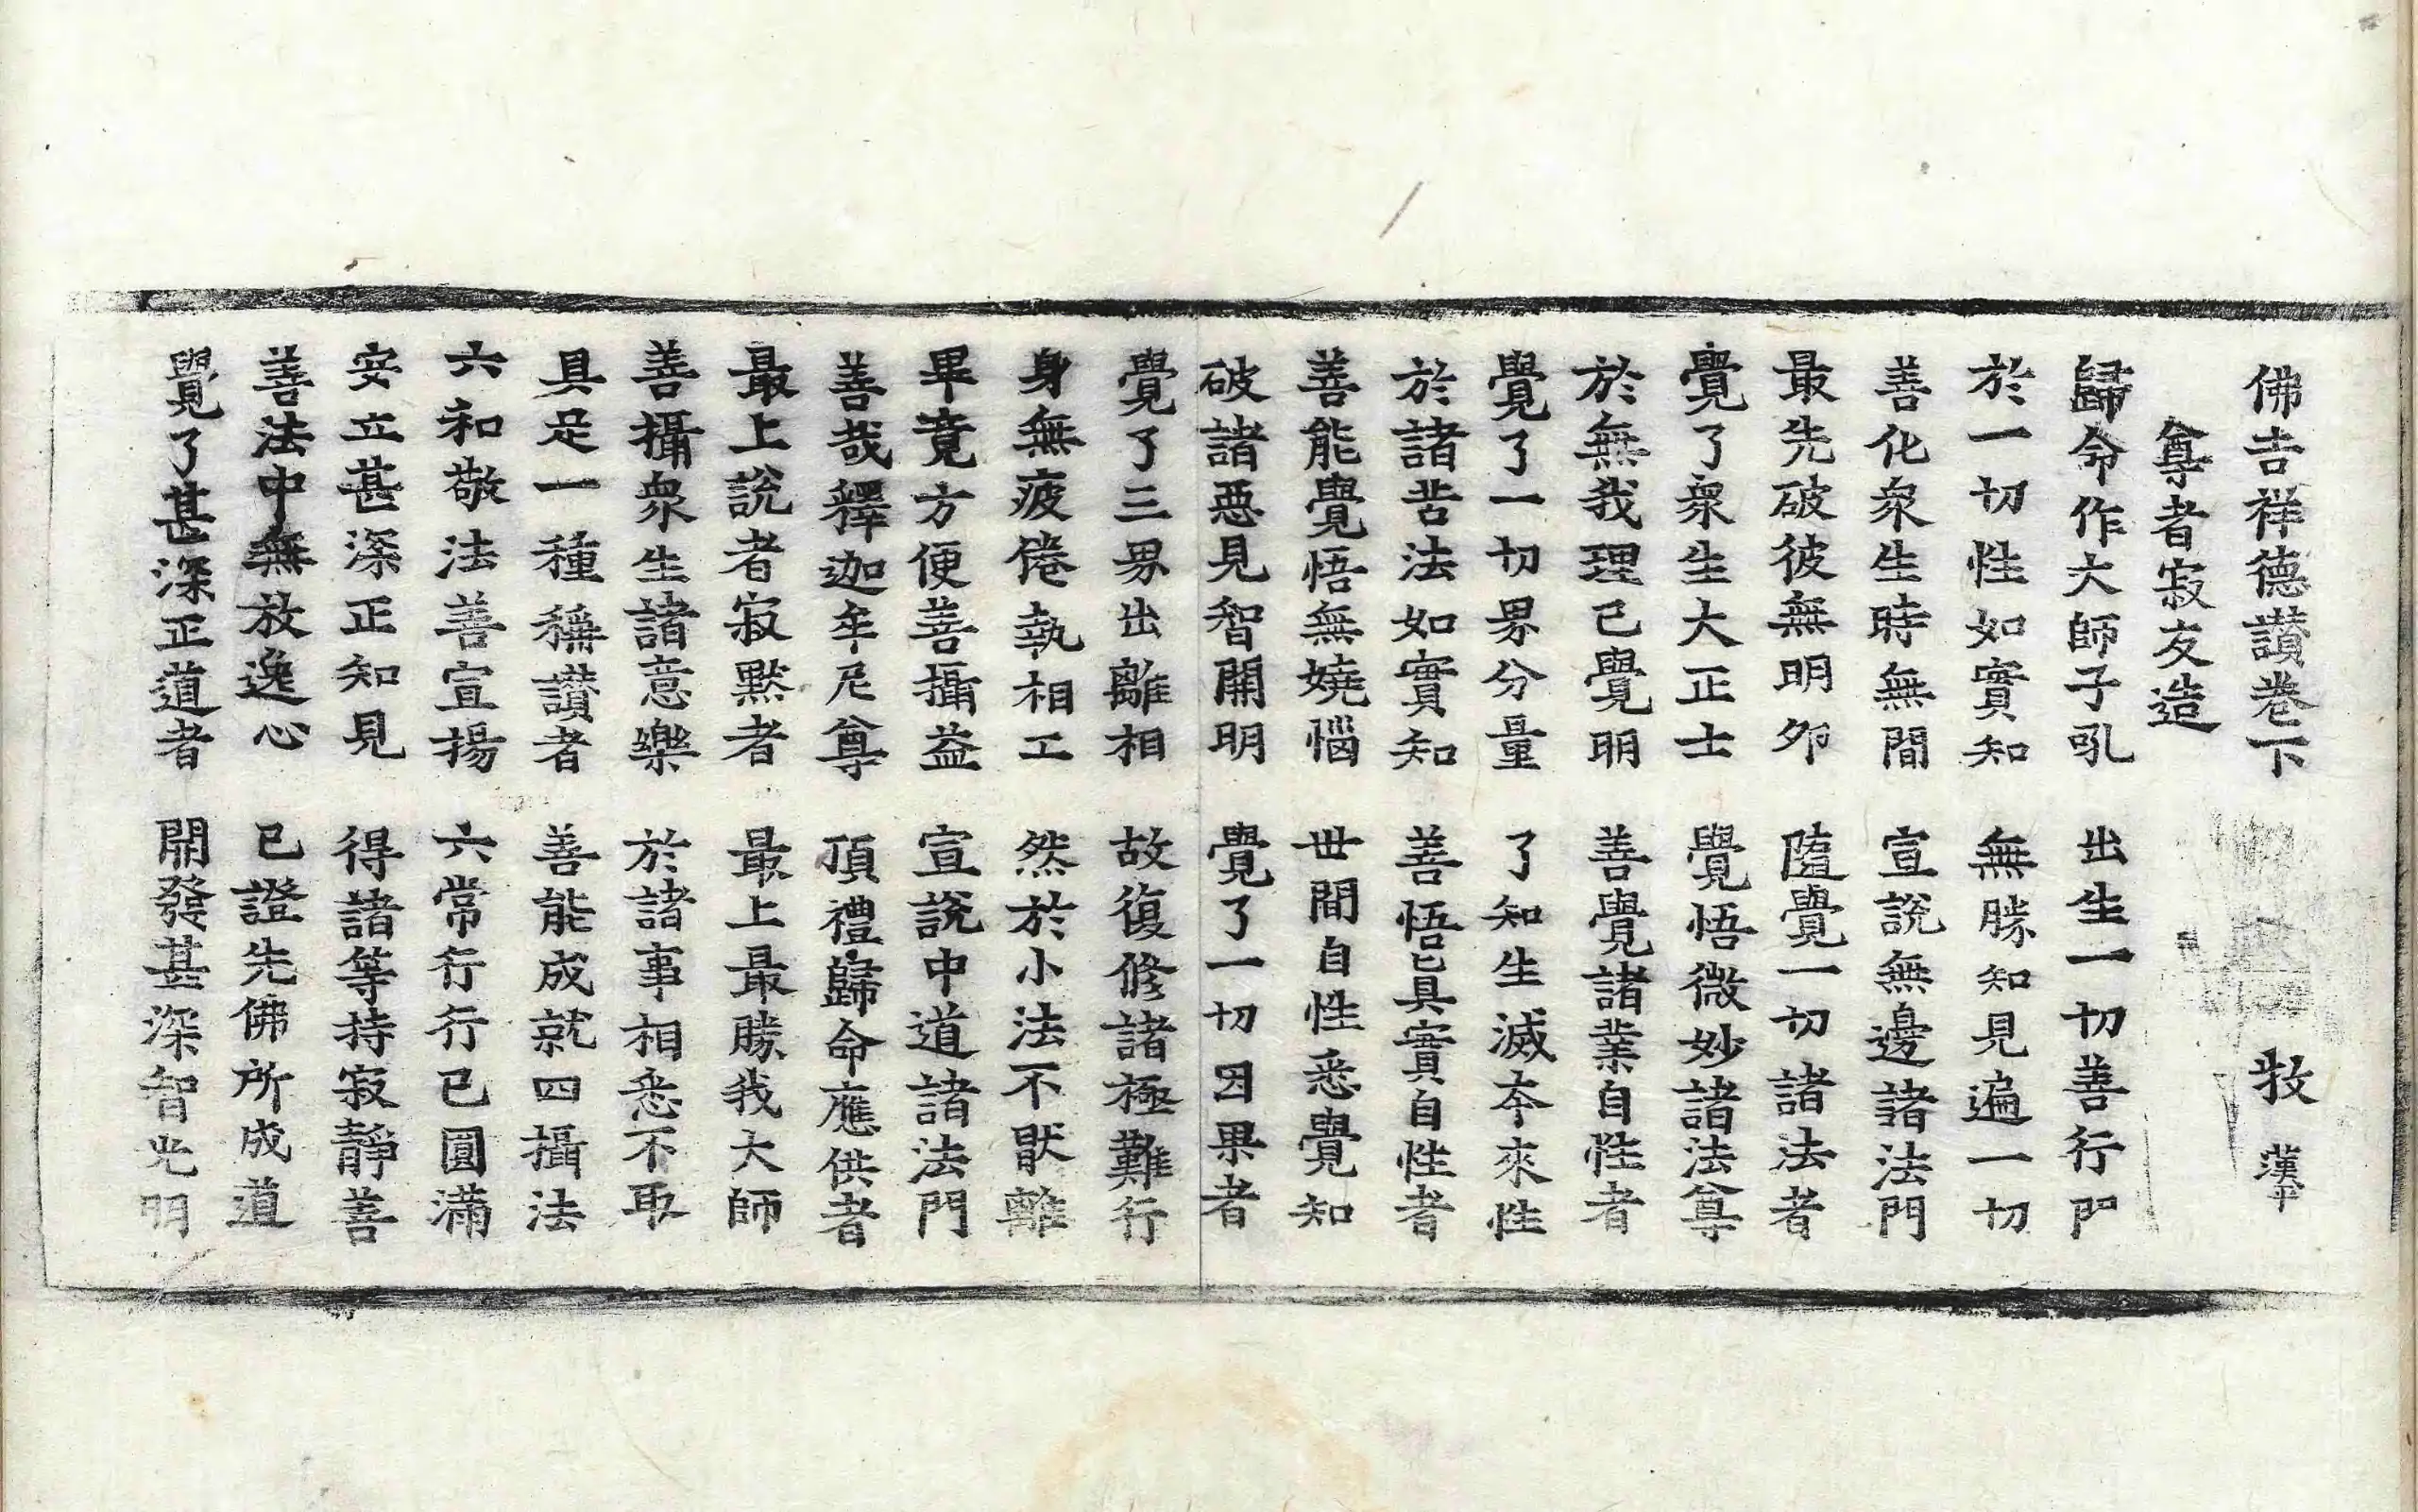 佛吉祥德讃卷下 㪅 漢平
尊者寂友造
歸命作大師子吼 出生一切善行門
於一切性如實知 無勝知見遍一切
善化衆生時無間 宣說無邊諸法門
最先破彼無明夘 隨覺一切諸法者
覺了衆生大正士 覺悟微妙諸法尊
於無我理已覺明 善覺諸業自性者
覺了一切界分量 了知生滅本來性
於諸苦法如實知 善悟眞實自性者
善能覺悟無嬈惱 世間自性悉覺知
破諸惡見智開明 覺了一切因果者
覺了三界出離相 故復修諸極難行
身無疲倦執相工 然於小法不猒離
畢竟方便善攝益 宣說中道諸法門
善哉釋迦牟尼尊 頂禮歸命應供者
最上說者寂默者 最上最勝我大師
善攝衆生諸意樂 於諸事相悉不取
具足一種稱讃者 善能成就四攝法
六和敬法善宣揚 六常行行已圓滿
安立甚深正知見 得諸等持寂靜善
善法中無放逸心 已證先佛所成道
覺了甚深正道者 開發甚深智光明